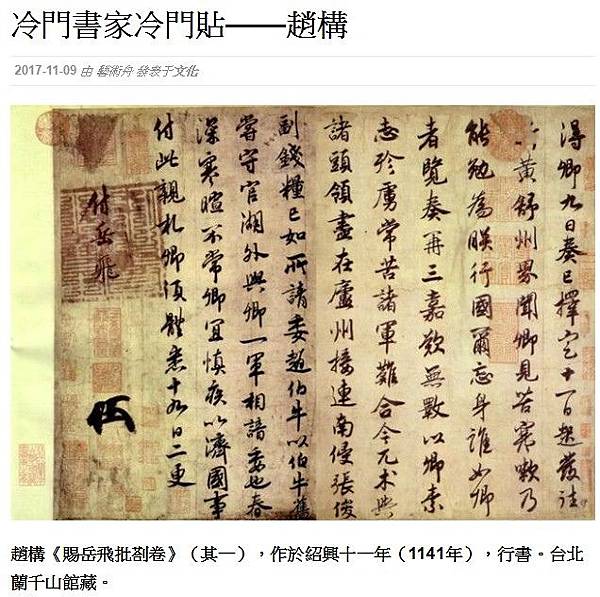 冷門書家冷門貼——趙構
2017-11-09 由 藝術舟 發表于文化
得卿九日奏已擇定十一日起發往
黃舒州界聞卿見苦寒嗽乃
能勉為朕行國爾忘身誰如卿
者覽奏再三嘉歎無斁以卿素
志殄虜常苦諸軍難合今兀朮與
諸頭領盡在廬州接連南侵張俊
副錢糧已如所請委趙伯牛以伯牛舊
嘗守官湖外與卿一軍相諳委也春
深寒暄不常卿宜慎疾以濟國事
付此親札卿須體悉十九日二更
付岳飛
趙構《賜岳飛批劄卷》（其一），作於紹興十一年（1141年），行書。台北
蘭千山館藏。